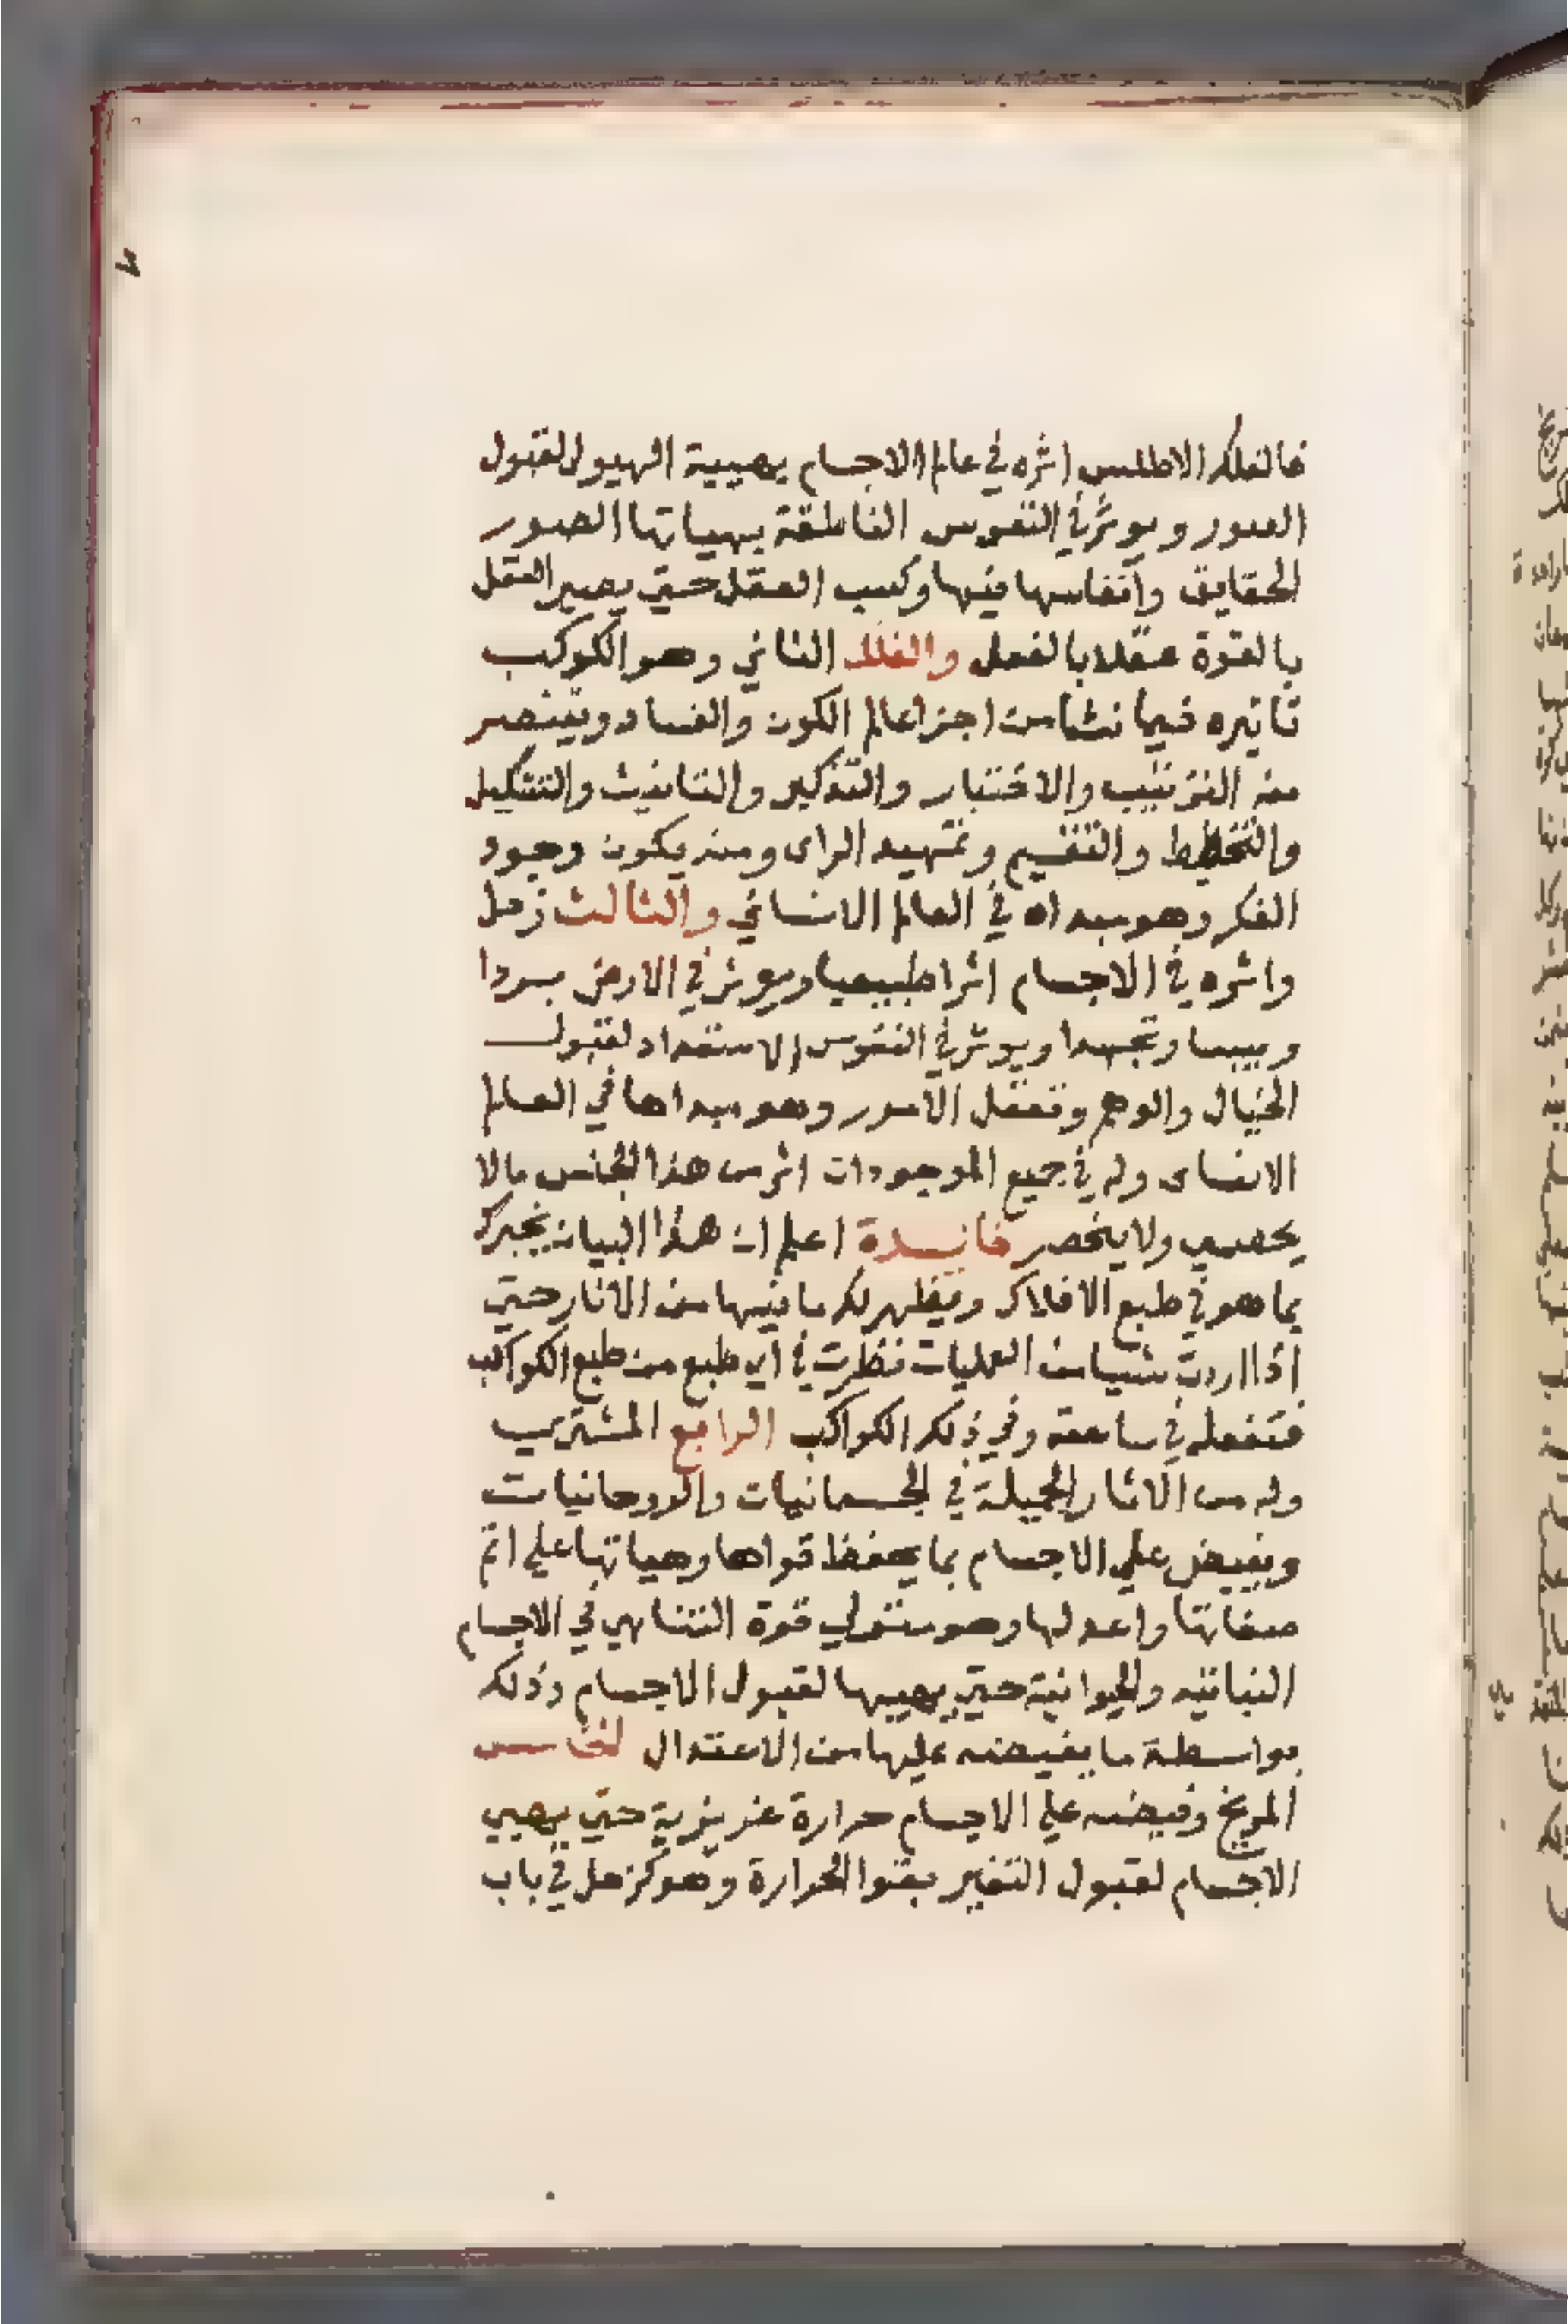 فالفلك الاطلس اثره في عالم الاجسام يهيية الهيولي لقبول
الصور ويوثر في النفوس الناطقة بهياتها الصور
الحقايق وانفاسها فيها وكسب العقل حتي يصير العقل
بالقوة عقلا بالفعل والفلك الثاني وهو الكوكب
تاتيره فيما نشا من اجزا عالم الكون والفساد ويتبصر
منه الترتيب والاختبار والتذكير والتانيث والتشكيل
والتخطيط والتقسيم وتمهيد الراى ومنه يكون وجود
الفكر وهو مبداه في العالم الانساني والثالث زحل
واثره في الاجسام اثرا طبيعيا ويوثر في الارض بردا
ويبسا وتجسدا ويوثر في النفوس الاستعداد لقبول
الخيال والوهم وتعقل الامور وهو مبداها في العالم
الانساى وله في جميع الموجودات اثر من هذا الجنس مالا
يحصي ولا ينحصر فايدة اعلم ان هذا البيان يخبرك
بما هو في طبع الافلاك ويظهر لك ما فيها من الاثار حتي
اذا اردت شيا من العمليات نظرت في اي طبع من طبع الكواكب
فتفعله في ساعته وفي ذلك الكواكب الرابع المشتري
وله من الاثار الجميلة في الجسمانيات والروحانيات
ويفيض علي الاجسام بما يحفظ قواها وهياتها علي اتم
صفاتها واعدلها وهو متولي قوة التناهي في الاجسام
النباتيه والحيوانية حتي يهييها لقبول الاجسام وذلك
بواسطة ما يفيضه عليها من الاعتدال الخامس
المريخ وفيضه علي الاجسام حرارة غريزية حتي يهيي
الاجسام لقبول التغير بقوا الحرارة وهو كزحل في باب